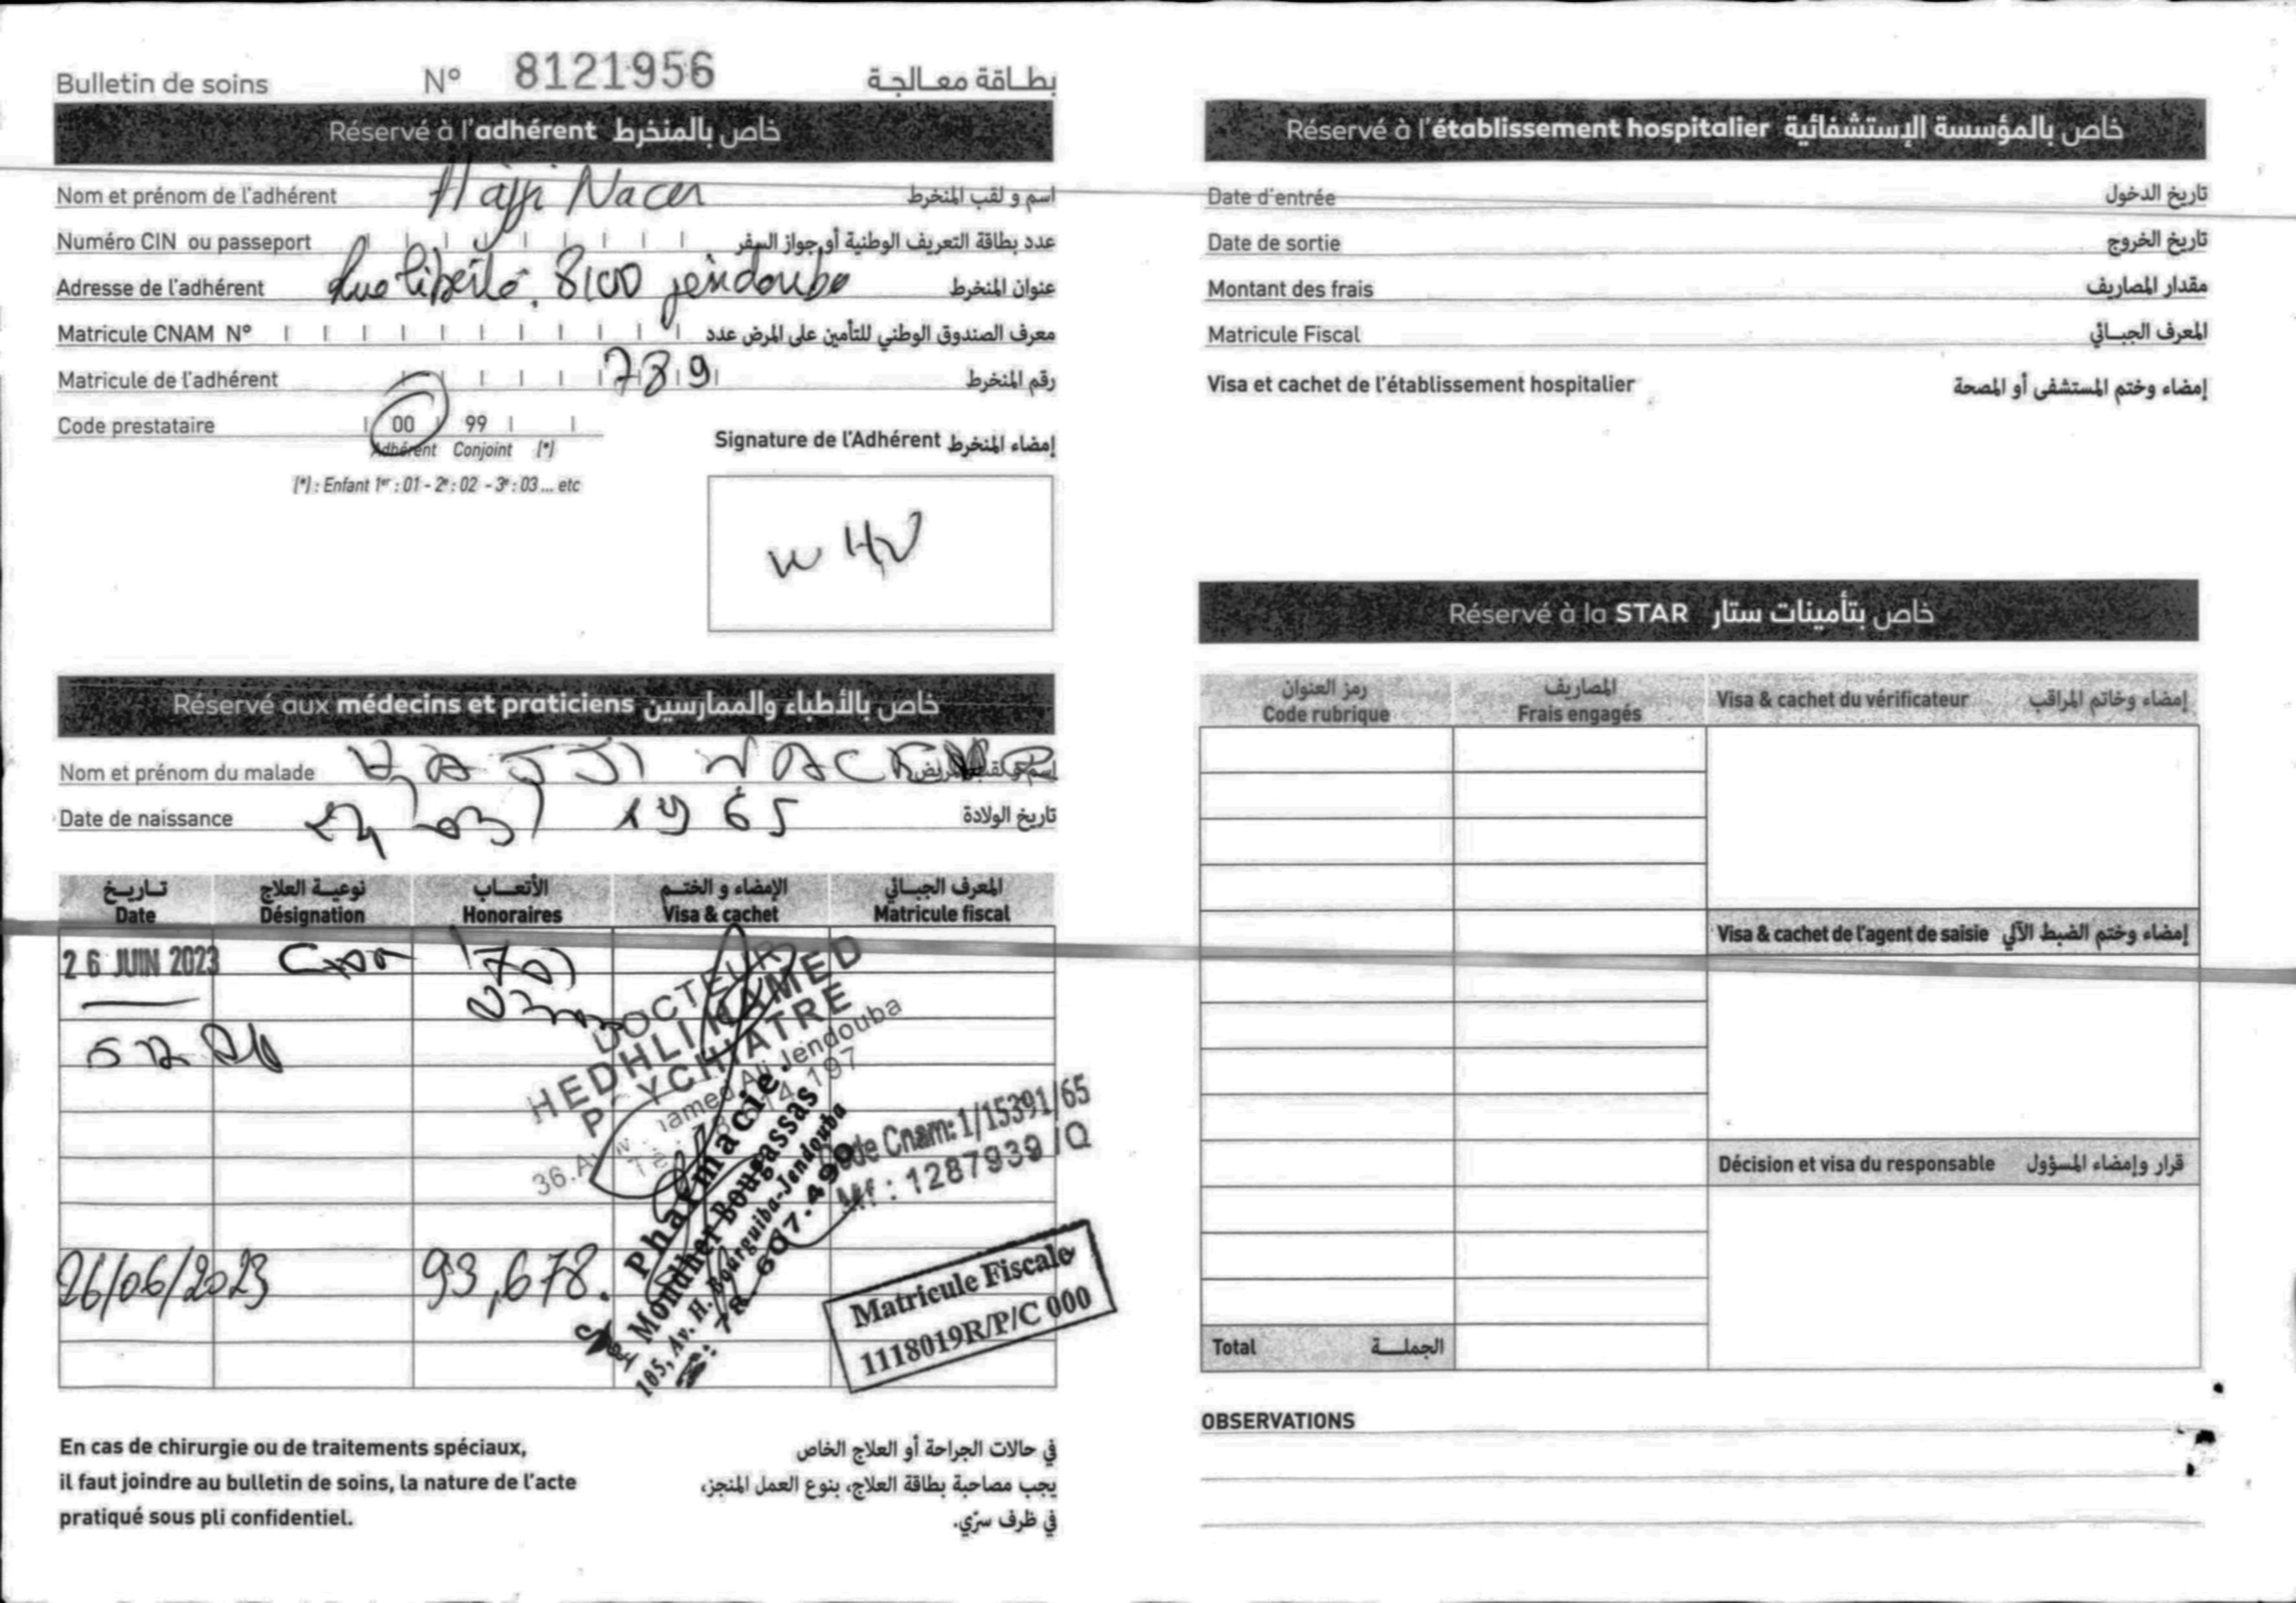 Bulletin de soins N° 8121956 بطاقة معالجة
Réservé à l'adhérent خاص بالمنخرط
Nom et prénom de l'adhérent Hajji Nacer اسم و لقب المنخرط
Numéro CIN ou passeport عدد بطاقة التعريف الوطنية أو جواز السفر
Adresse de l'adhérent Rue liberté. 8100 jendouba عنوان المنخرط
Matricule CNAM N° معرف الصندوق الوطني للتأمين على المرض عدد
Matricule de l'adhérent 789 رقم المنخرط
Code prestataire 00 99
Adhérent Conjoint (*)
(*) : Enfant 1er : 01 - 2e : 02 - 3e : 03 ... etc
Signature de l'Adhérent إمضاء المنخرط
Réservé aux médecins et praticiens خاص بالأطباء والممارسين
Nom et prénom du malade HAJJI NACER اسم و لقب المريض
Date de naissance 1965 تاريخ الولادة
تاريخ نوعية العلاج الأتعاب الإمضاء و الختم المعرف الجبائي
Date Désignation Honoraires Visa & cachet Matricule fiscal
26 JUIN 2023
DOCTEUR
HEDHLI HAMED
PSYCHIATRE
Jendouba
Code Cnam: 1/15391/65
Mf : 1287939/Q
26/06/2023 93,678.
Pharmacie
Mondher Bougassas
105, Av. H. Bourguiba-Jendouba
78.607.490
Matricule Fiscale
1118019R/P/C 000
En cas de chirurgie ou de traitements spéciaux,
il faut joindre au bulletin de soins, la nature de l'acte
pratiqué sous pli confidentiel.
في حالات الجراحة أو العلاج الخاص
يجب مصاحبة بطاقة العلاج، بنوع العمل المنجز،
في ظرف سرّي.
Réservé à l'établissement hospitalier خاص بالمؤسسة الإستشفائية
Date d'entrée تاريخ الدخول
Date de sortie تاريخ الخروج
Montant des frais مقدار المصاريف
Matricule Fiscal المعرف الجبائي
Visa et cachet de l'établissement hospitalier إمضاء وختم المستشفى أو المصحة
Réservé à la STAR خاص بتأمينات ستار
رمز العنوان المصاريف
Code rubrique Frais engagés Visa & cachet du vérificateur إمضاء وخاتم المراقب
Visa & cachet de l'agent de saisie إمضاء وختم الضبط الآلي
Décision et visa du responsable قرار وإمضاء المسؤول
Total الجملة
OBSERVATIONS